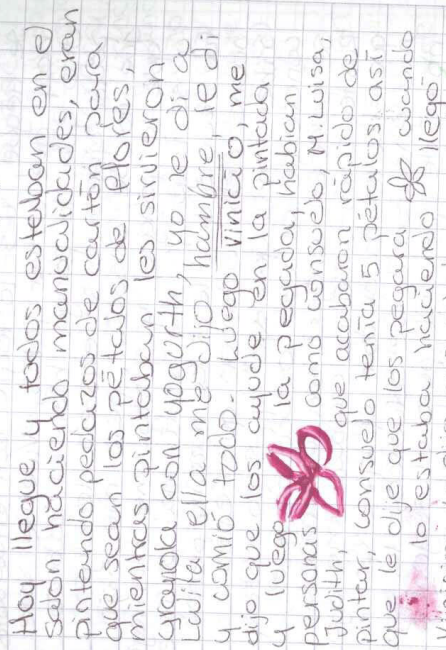 Hoy llegue y todos estaban en el
salón haciendo manualidades, eran
pintando pedazos de cartón para
que sean los pétalos de flores,
mientras pintaban les sirvieron
granola con yogurth, yo le di a
Luita ella me dijo hambre, le di
y comió todo. Luego Vinicio, me
dijo que los ayude en la pintada
y luego la pegada, habían
personas como Consuelo, M. Luisa,
Judith, que acabaron rápido de
pintar, Consuelo tenía 5 pétalos, así
que le dije que los pegara cuando
lo estaba haciendo llegó